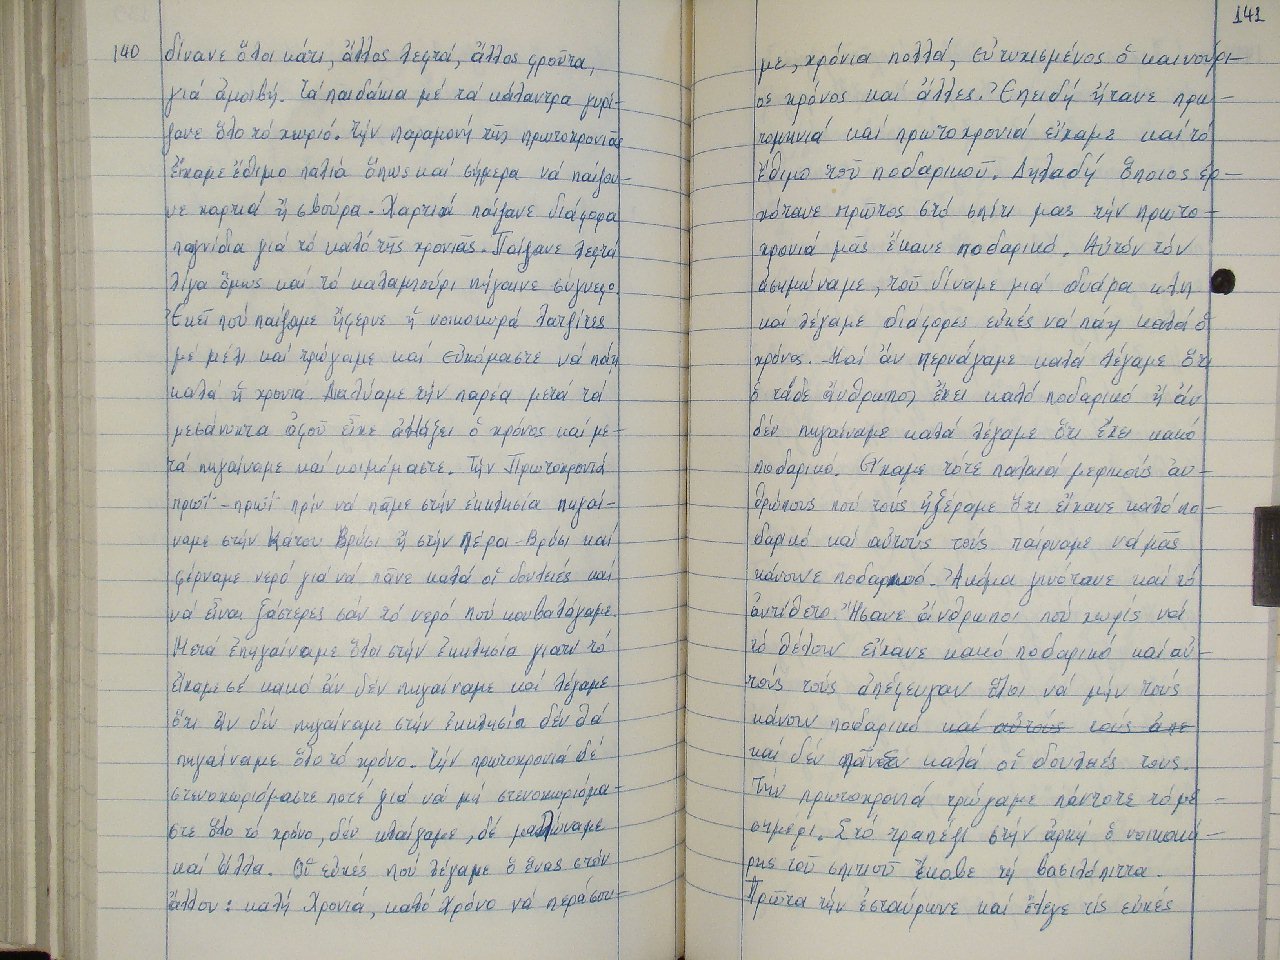 140
δίνανε ὅλοι κάτι, ἄλλος λεφτά, ἄλλος φροῦτα,
γιά ἀμοιβή. Τά παιδάκια μέ τά κάλαντρα γυρί-
ζανε ὅλο τό χωριό. Τήν παραμονή τῆς πρωτοχρονιᾶς
εἴχαμε ἔθιμο παλιά ὅπως καί σήμερα νά παίζου-
με χαρτιά ἤ σβούρα. Χαρτιά παίζανε διάφορα
παγνίδια γιά τό καλό τῆς χρονιᾶς. Παίζανε λεφτά
λίγα ὅμως καί τό καλαμπούρι πήγαινε σύγνεφο.
Ἐκεῖ πού παίζαμε ἤφερνε ἡ νοικοκυρά λατζίτες
μέ μέλι καί τρώγαμε καί εὐχόμαστε νά πάη
καλά ἡ χρονιά. Διαλύαμε τήν παρέα μετά τά
μεσάνυχτα ἀφοῦ εἶχε ἀλλάξει ὁ χρόνος καί με-
τά πηγαίναμε καί κοιμόμαστε. Τήν Πρωτοχρονιά
πρωΐ-πρωΐ πρίν νά πᾶμε στήν ἐκκλησία πηγαί-
ναμε στήν Κάτου Βρύσι ἤ στήν Πέρα-Βρύσι καί
φέρναμε νερό γιά νά πᾶνε καλά οἱ δουλειές καί
νά εἶναι ξάστερες σάν τό νερό πού κουβαλάγαμε.
Μετά ἐπηγαίναμε ὅλοι στήν ἐκκλησία γιατί τό
εἴχαμε σέ κακό ἄν δέν πηγαίναμε καί λέγαμε
ὅτι ἄν δέν πηγαίναμε στήν ἐκκλησία δέν θά
πηγαίναμε ὅλο τό χρόνο. Τήν πρωτοχρονιά δέ
στενοχωριόμαστε ποτέ γιά νά μή στενοχωριόμα-
στε ὅλο τό χρόνο, δέν κλαίγαμε, δέ μαλώναμε
καί ἄλλα. Οἱ εὐχές πού λέγαμε ὁ ἕνας στόν
ἄλλον: καλή Χρονιά, καλό Χρόνο νά περάσου-
141
με, χρόνια πολλά, εὐτυχισμένος ὁ καινούρι-
ος χρόνος καί ἄλλες. Ἐπειδή ἤτανε πρω-
τομηνιά καί πρωτοχρονιά εἴχαμε καί τό
ἔθιμο τοῦ ποδαρικοῦ. Δηλαδή ὅποιος ἐρ-
χότανε πρῶτος στό σπίτι μας τήν πρωτο-
χρονιά μᾶς ἔκανε ποδαρικό. Αὐτόν τόν
ἀσημώναμε, τοῦ δίναμε μιά δυάρα κλπ
καί λέγαμε διάφορες εὐχές νά πάη καλά ὁ
χρόνος. Καί ἄν περνάγαμε καλά λέγαμε ὅτι
ὁ τάδε ἄνθρωπος ἔχει καλό ποδαρικό ἤ ἄν
δέν πηγαίναμε καλά λέγαμε ὅτι ἔχει κακό
ποδαρικό. Εἴχαμε τότε παλαιά μερικούς ἀν-
θρώπους πού τούς ἠξέραμε ὅτι εἴχανε καλό πο-
δαρικό καί αὐτούς τούς παίρναμε νά μᾶς
κάνουνε ποδαρικό. Ἀκόμα γινότανε καί τό
ἀντίθετο. Ἤσανε ἀνθρωποι πού χωρίς νά
τό θέλουν εἴχανε κακό ποδαρικό καί αὐ-
τούς τούς ἀπέφευγαν ὅλοι νά μήν τούς
κάνουν ποδαρικό καί αὐτούς τούς ἀπε
καί δέν πᾶνε καλά οἱ δουλειές τους.
Τήν πρωτοχρονιά τρώγαμε πάντοτε τό με-
σημέρι. Στό τραπέζι στήν ἀρχή ὁ νοικοκύ-
ρης τοῦ σπιτιοῦ ἔκοβε τή βασιλόπιττα.
Πρῶτα τήν ἐσταύρωνε καί ἔλεγε τίς εὐχές